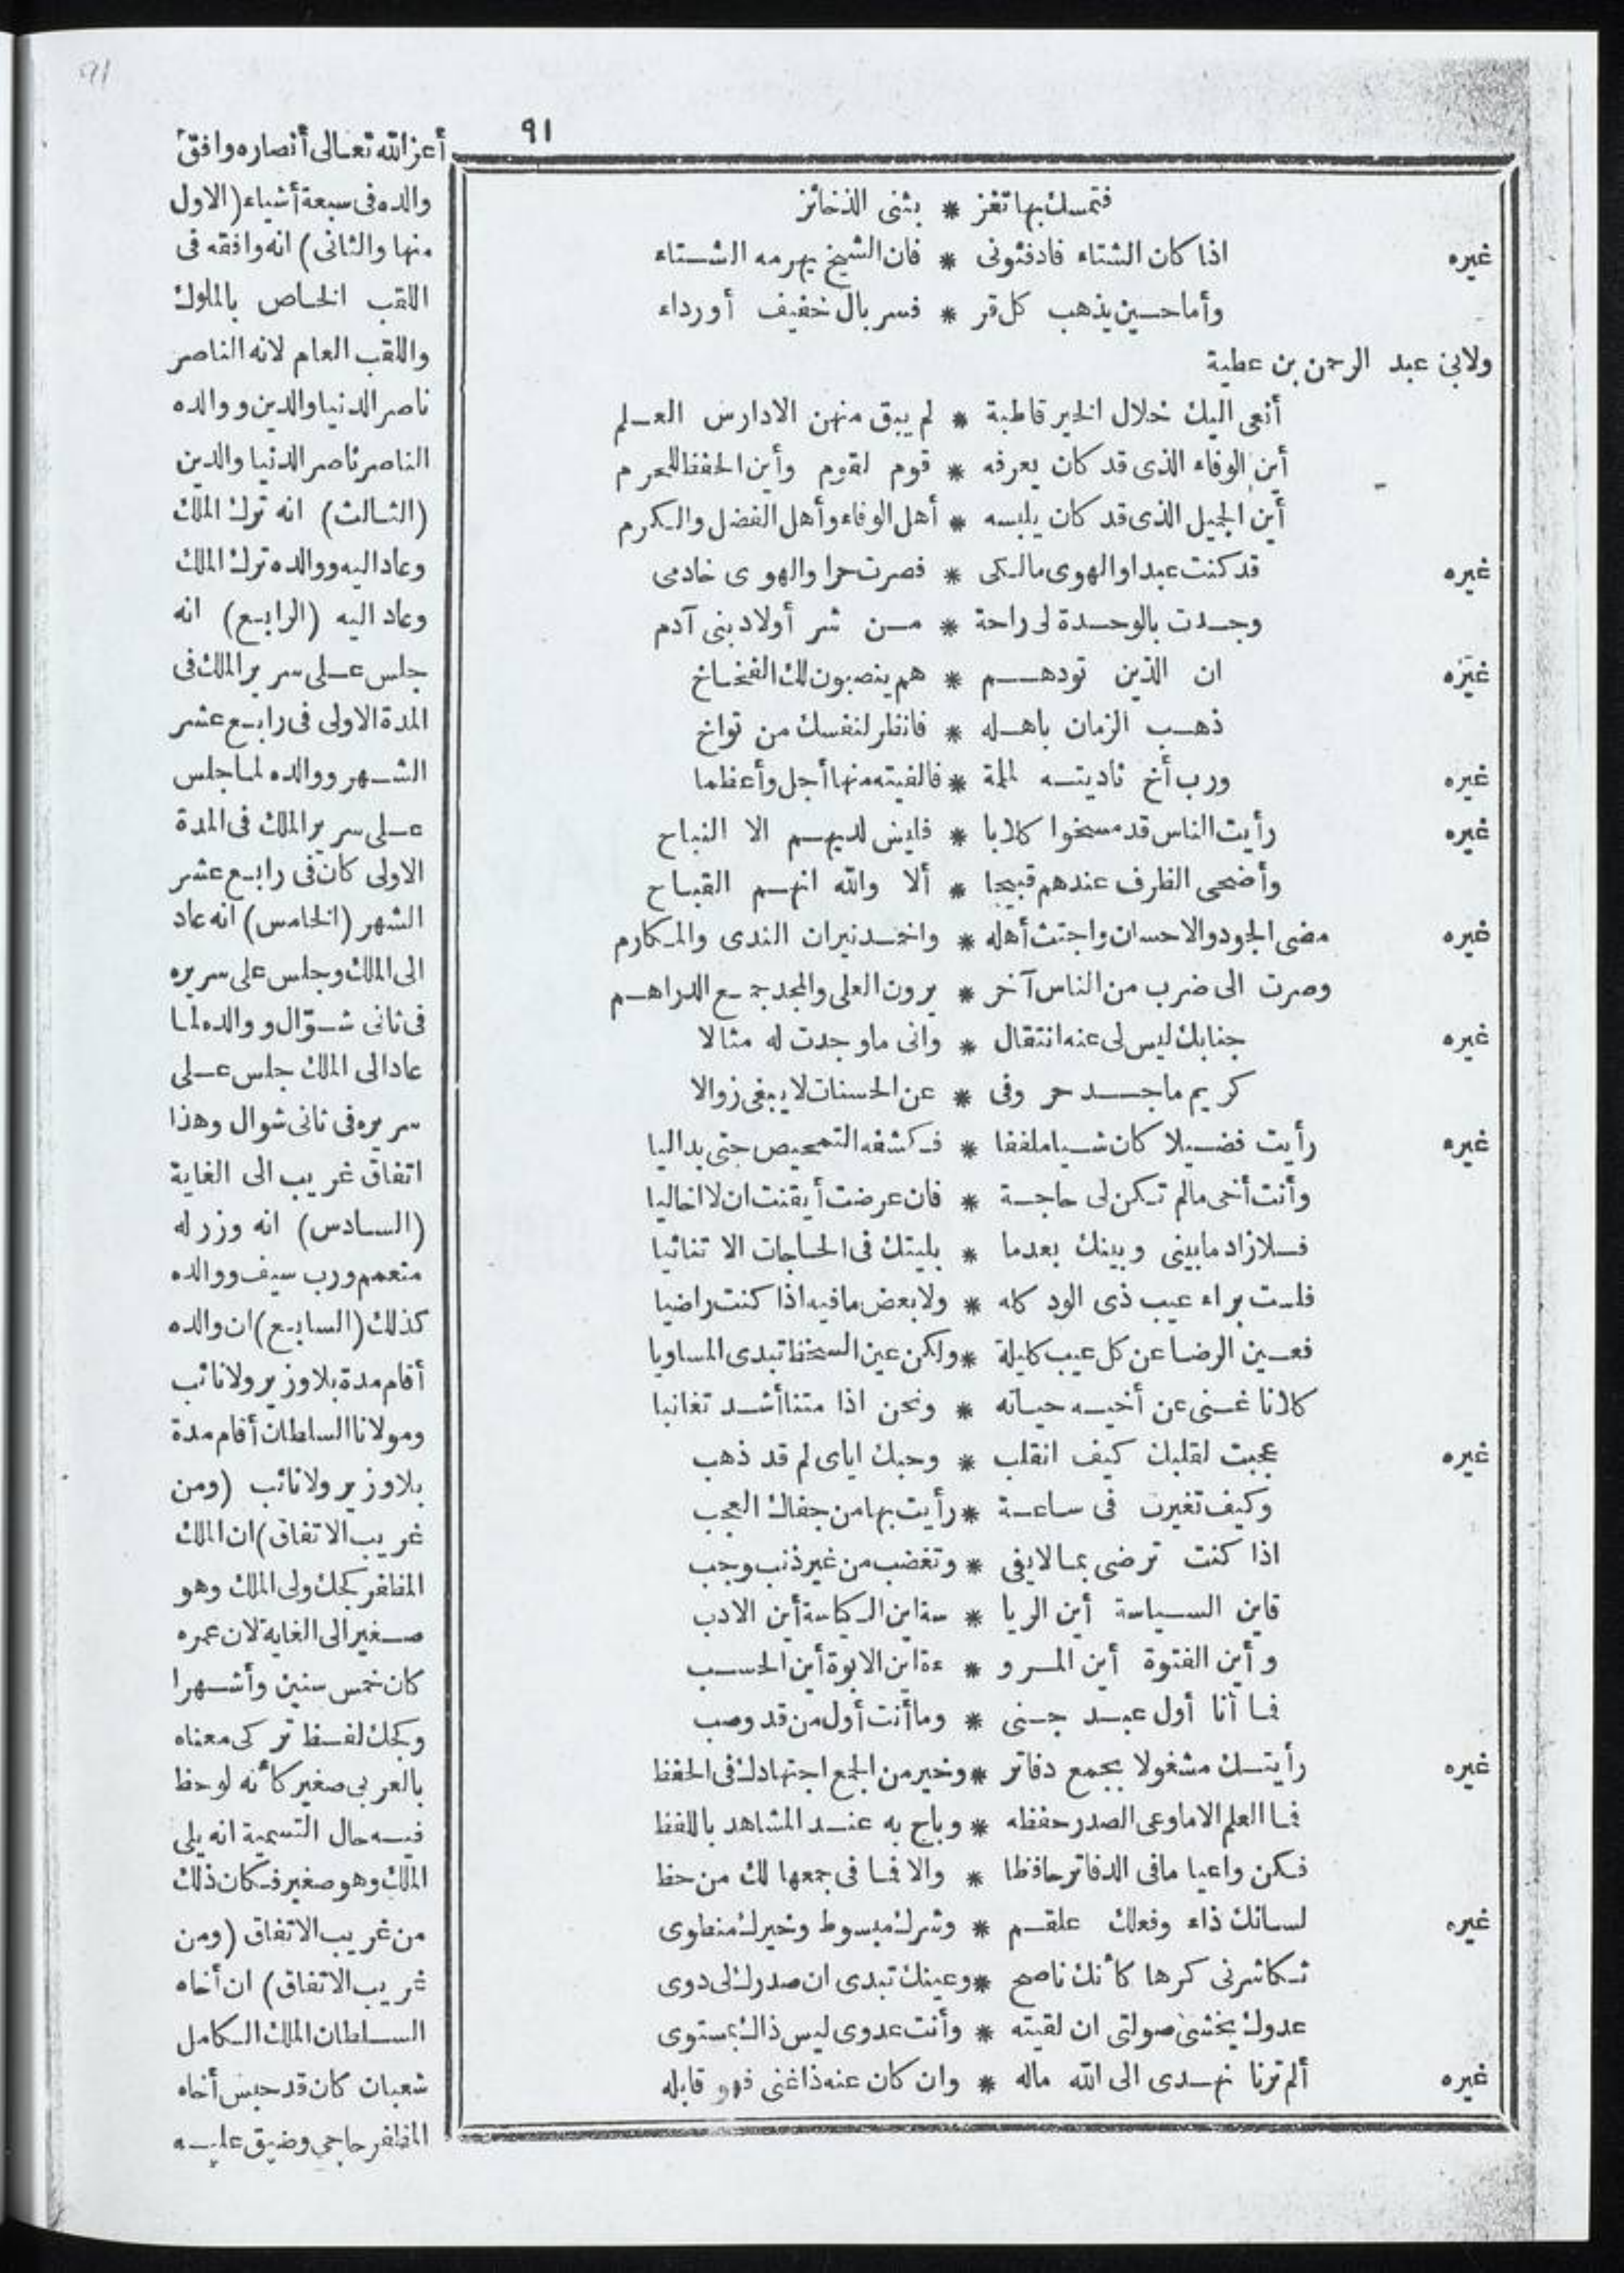 ٩١
فتمسك بها تفز * بثنى الذخائز
غيره اذا كان الشتاء فادفئونى * فان الشيخ يهرمه الشتاء
وأما حسين يذهب كل قر * فسربال خفيف أورداء
ولابى عبد الرحمن بن عطية
أنعى اليك خلال الخير قاطبة * لم يبق منهن الا دارس العلم
أين الوفاء الذى قد كان يعرفه * قوم لقوم وأين الحفظ للحرم
أين الجميل الذى قد كان يلبسه * أهل الوفاء وأهل الفضل والكرم
غيره قد كنت عبدا والهوى مالكى * فصرت حرا والهوى خادمى
وجدت بالوحدة لى راحة * من شر أولاد بنى آدم
غيره ان الذين تودهم * هم ينصبون لك الفخاخ
ذهب الزمان باهله * فانظر لنفسك من تواخ
غيره ورب أخ ناديته لملمة * فالفيته منها أجل وأعظما
غيره رأيت الناس قد مسخوا كلابا * فليس لديهم الا النباح
وأضحى الظرف عندهم قبيحا * ألا والله انهم القباح
غيره مضى الجود والاحسان واجتث أهله * واخمد نيران الندى والمكارم
وصرت الى ضرب من الناس آخر * يرون العلى والمجد جمع الدراهم
غيره جنابك ليس لى عنه انتقال * وانى ما وجدت له مثالا
كريم ماجد حر وفى * عن الحسنات لا يبغى زوالا
غيره رأيت فضيلا كان شيا ملففا * فكشفه التمحيص حتى بداليا
وأنت أخى مالم تكن لى حاجة * فان عرضت أيقنت ان لا اخاليا
فلا زاد ما بينى وبينك بعدما * بليتك فى الحاجات الا تنائيا
فلست براء عيب ذى الود كله * ولا بعض ما فيه اذا كنت راضيا
فعين الرضا عن كل عيب كليلة * ولكن عين السخط تبدى المساويا
كلانا غنى عن أخيه حياته * ونحن اذا متنا أشد تغانيا
غيره عجبت لقلبك كيف انقلب * وحبك اياى لم قد ذهب
وكيف تغيرت فى ساعة * رأيت بها من جفاك العجب
اذا كنت ترضى بما لا يفى * وتغضب من غير ذنب وجب
فاين السياسة أين الريا * سة اين الكياسة أين الادب
وأين الفتوة أين المرو * ءة اين الابوة أين الحسب
فما أنا أول عبد جنى * وما أنت أول من قد وصب
غيره رأيتك مشغولا بجمع دفاتر * وخير من الجمع اجتهادك فى الحفظ
فما العلم الا ما وعى الصدر حفظه * وباح به عند المشاهد باللفظ
فكن واعيا ما فى الدفاتر حافظا * والا فما فى جمعها لك من حظ
غيره لسانك ذاء وفعلك علقم * وشرك مبسوط وخيرك منطوى
تكاشرنى كرها كأنك ناصح * وعينك تبدى ان صدرك لى دوى
عدوك يخشى صولتى ان لقيته * وأنت عدوى ليس ذاك بمستوى
غيره ألم ترنا نهدى الى الله ماله * وان كان عنه ذا غنى فهو قابله
أعز الله تعالى أنصاره وافق
والده فى سبعة أشياء (الاول
منها والثانى) انه وافقه فى
اللقب الخاص بالملوك
واللقب العام لانه الناصر
ناصر الدنيا والدين ووالده
الناصر ناصر الدنيا والدين
(الثالث) انه ترك الملك
وعاد اليه ووالده ترك الملك
وعاد اليه (الرابع) انه
جلس على سرير الملك فى
المدة الاولى فى رابع عشر
الشهر ووالده لما جلس
على سرير الملك فى المدة
الاولى كان فى رابع عشر
الشهر (الخامس) انه عاد
الى الملك وجلس على سريره
فى ثانى شوّال ووالده لما
عاد الى الملك جلس على
سريره فى ثانى شوال وهذا
اتفاق غريب الى الغاية
(السادس) انه وزر له
متعمم ورب سيف ووالده
كذلك (السابع) ان والده
أقام مدة بلا وزير ولا نائب
ومولانا السلطان أقام مدة
بلا وزير ولا نائب (ومن
غريب الاتفاق) ان الملك
المظفر كجك ولى الملك وهو
صغير الى الغاية لان عمره
كان خمس سنين وأشهرا
وكجك لفظ تركى معناه
بالعربى صغير كأنه لوحظ
فيه حال التسمية انه يلى
الملك وهو صغير فكان ذلك
من غريب الاتفاق (ومن
غريب الاتفاق) ان أخاه
السلطان الملك الكامل
شعبان كان قد حبس أخاه
المظفر حاجى وضيق عليه